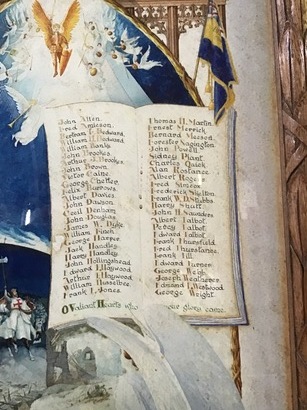 John Allen.
Fred Ameson.
Bertram F. Bedward.
William H. Bedward
William Banks
John Brookes.
Arthur J. Brookes.
John Brown
Victor Caine.
George Chetter.
Felix Burrows.
Albert Davies
John Davison.
Cecil Denham
John Douglas
James W. Dyke.
William Finch
George Harper.
Jack Handley.
Harry Handley
John Hollinshead
Edward J. Haywood
Arthur Haywood
William Husselbee.
Frank L. Jones.
Thomas H. Martin.
Ernest Merrick.
Bernard Messed.
Forester Nagington
John Powell
Sidney Plant
Charles Quick
Alan Rostance
Albert Roge
Fred Simcox
Frederick Skelton
Frank W.D. Stubbs
Harry Shutt
John H. Saunders
Albert Talbot
Percy Talbot
Edward Talbot
Frank Thursfield
Fred Thurstance
Frank Till
Edward Turner
George Weigh
Joseph Weatherer
Edmund L. Westwood
George Wright.
O Valiant Hearts who your glory came.